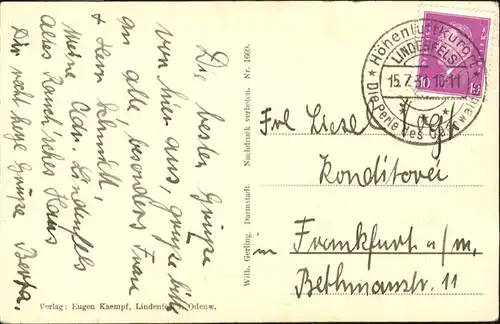 Die besten Grüße
von hier aus, grüße bitte
an alle, besonders Frau
& Herrn Schmidt,
Meine Adr. Lindenfels
altes Rauch'sches Haus
Dir recht herzl. Grüße Berta.
Verlag: Eugen Kaempf, Lindenfels i. Odenw.
Wilh. Gerling, Darmstadt. Nachdruck verboten. Nr. 1609.
Höhenluftkurort
LINDENFELS
15.7.31 10-11
Die Perle des Odenwaldes
Frl Liesel Vogt
Konditorei
in Frankfurt a/m,
Bethmanstr. 11